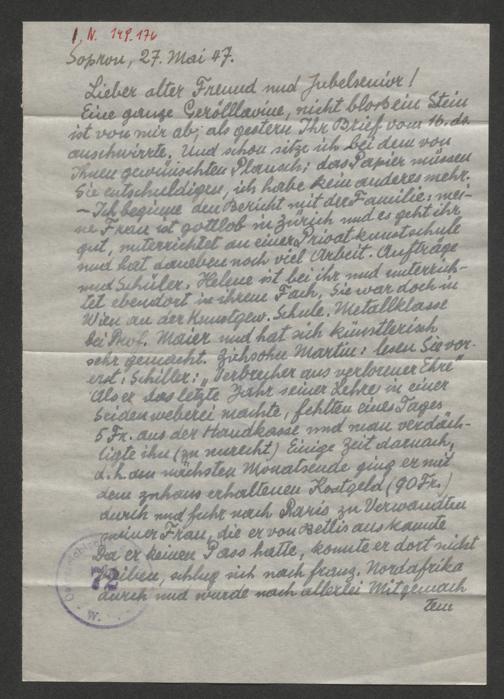 I. N. 149.176
Sopron, 27. Mai 47.
Lieber alter Freund und Jubelsenior!
Eine ganze Gerölllavine, nicht bloss ein Stein
ist von mir ab, als gestern Ihr Brief vom 16. ds.
anschwirrte. Und schon sitze ich bei dem von
Ihnen gewünschten Plausch; das Papier müssen
Sie entschuldigen, ich habe kein anderes mehr.
– Ich beginne den Bericht mit der Familie: mei-
ne Frau ist gottlob in Zürich und es geht ihr
gut, unterrichtet an einer Privatkunstschule
und hat daneben noch viel Arbeit. Aufträge
und Schüler. Helene ist bei ihr und unterrich-
tet ebendort in ihrem Fach, sie war doch in
Wien an der Kunstgew. Schule. Metallklasse
bei Prof. Maier und hat sich künstlerisch
sehr gemacht. Ziehsohn Martin: lesen Sie vor-
erst: Schiller: „Verbrecher aus verlorener Ehre"
Als er das letzte Jahr seiner Lehre in einer
Seidenweberei machte, fehlten eines Tages
5 Fr. aus der Handkasse und man verdäch-
tigte ihn (zu unrecht) Einige Zeit darnach,
d. h. am nächsten Monatsende ging er mit
dem zuhaus erhaltenen Kostgeld (90 Fr.)
durch und fuhr nach Paris zu Verwandten
meiner Frau, die er von Bellis aus kannte
Da er keinen Pass hatte, konnte er dort nicht
bleiben, schlug sich nach franz. Nordafrika
durch und wurde nach allerlei Mitgemach
tem
72
W.